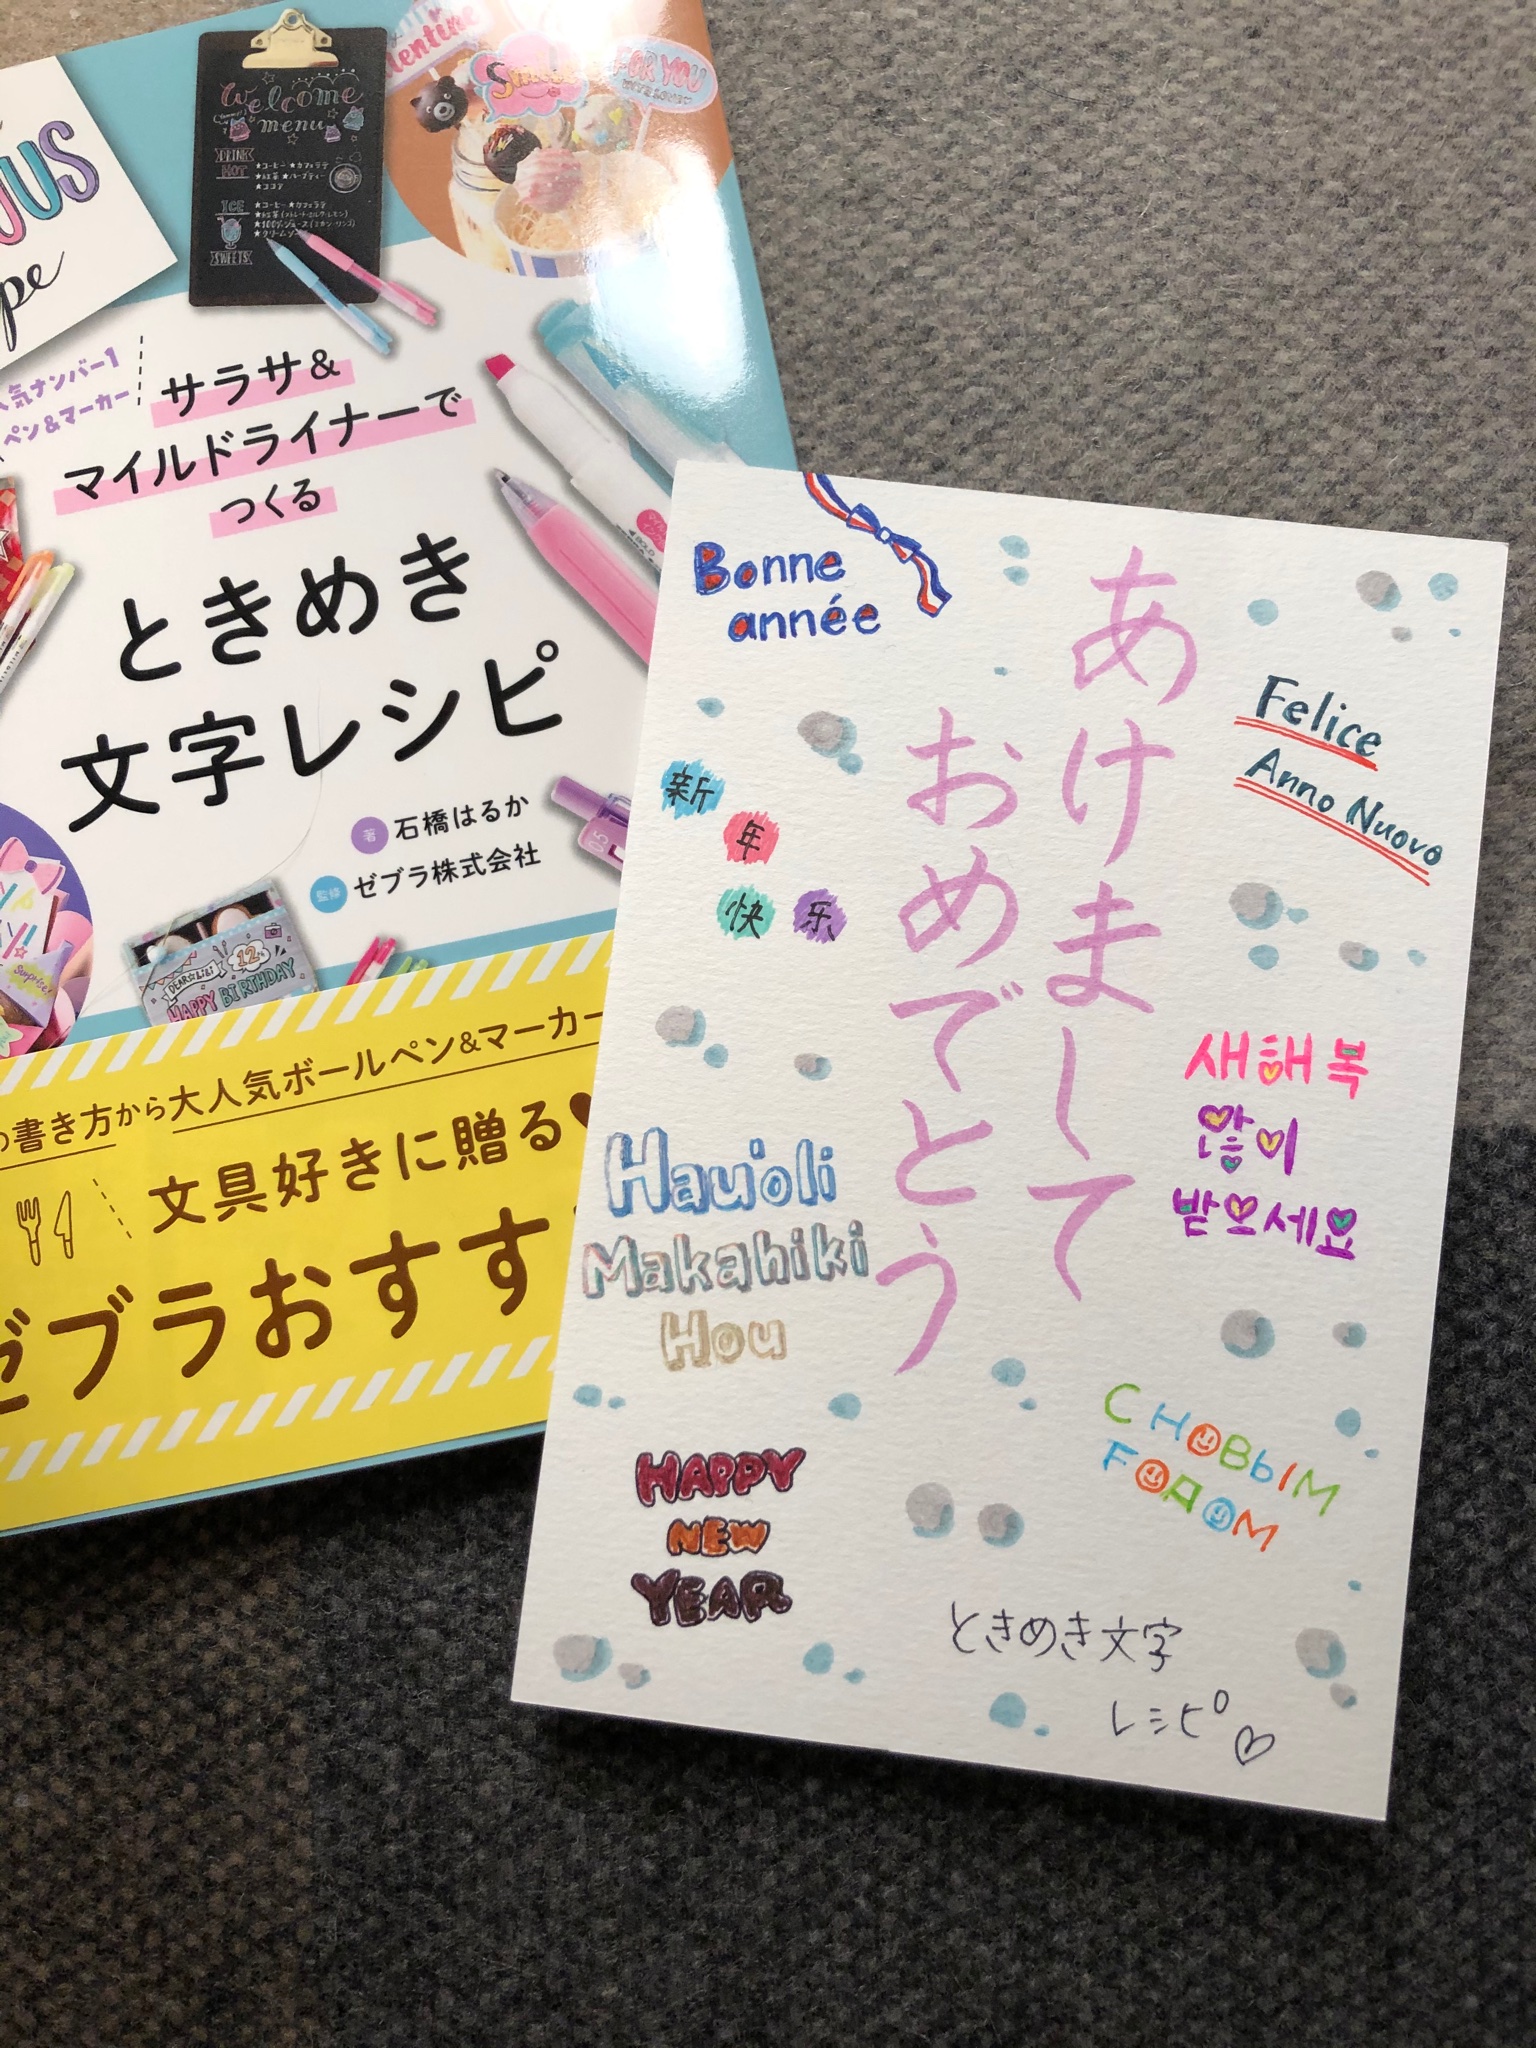 Valentine
Smile
FOR YOU
WITH LOVE
Welcome
menu
DRINK
HOT
★コーヒー ★カフェラテ
★紅茶 ★ハーブティー
★ココア
ICE
★コーヒー ★カフェラテ
★クリームソーダ
SWEETS
US
pe
人気ナンバー1
ペン&マーカー
サラサ&
マイルドライナーで
つくる
ときめき
文字レシピ
著 石橋はるか
監修 ゼブラ株式会社
0.5
Surprise!
DEAR☆LiLi
12th
HAPPY BIRTHDAY
の書き方から大人気ボールペン&マーカー
文具好きに贈る
ゼブラおすす
Bonne
année
あけまして
おめでとう
Felice
Anno Nuovo
新
年
快 乐
새해 복
많이
받으세요
Hauʻoli
Makahiki
Hou
С НОВЫМ
ГОДОМ
HAPPY
NEW
YEAR
ときめき文字
レシピ♡